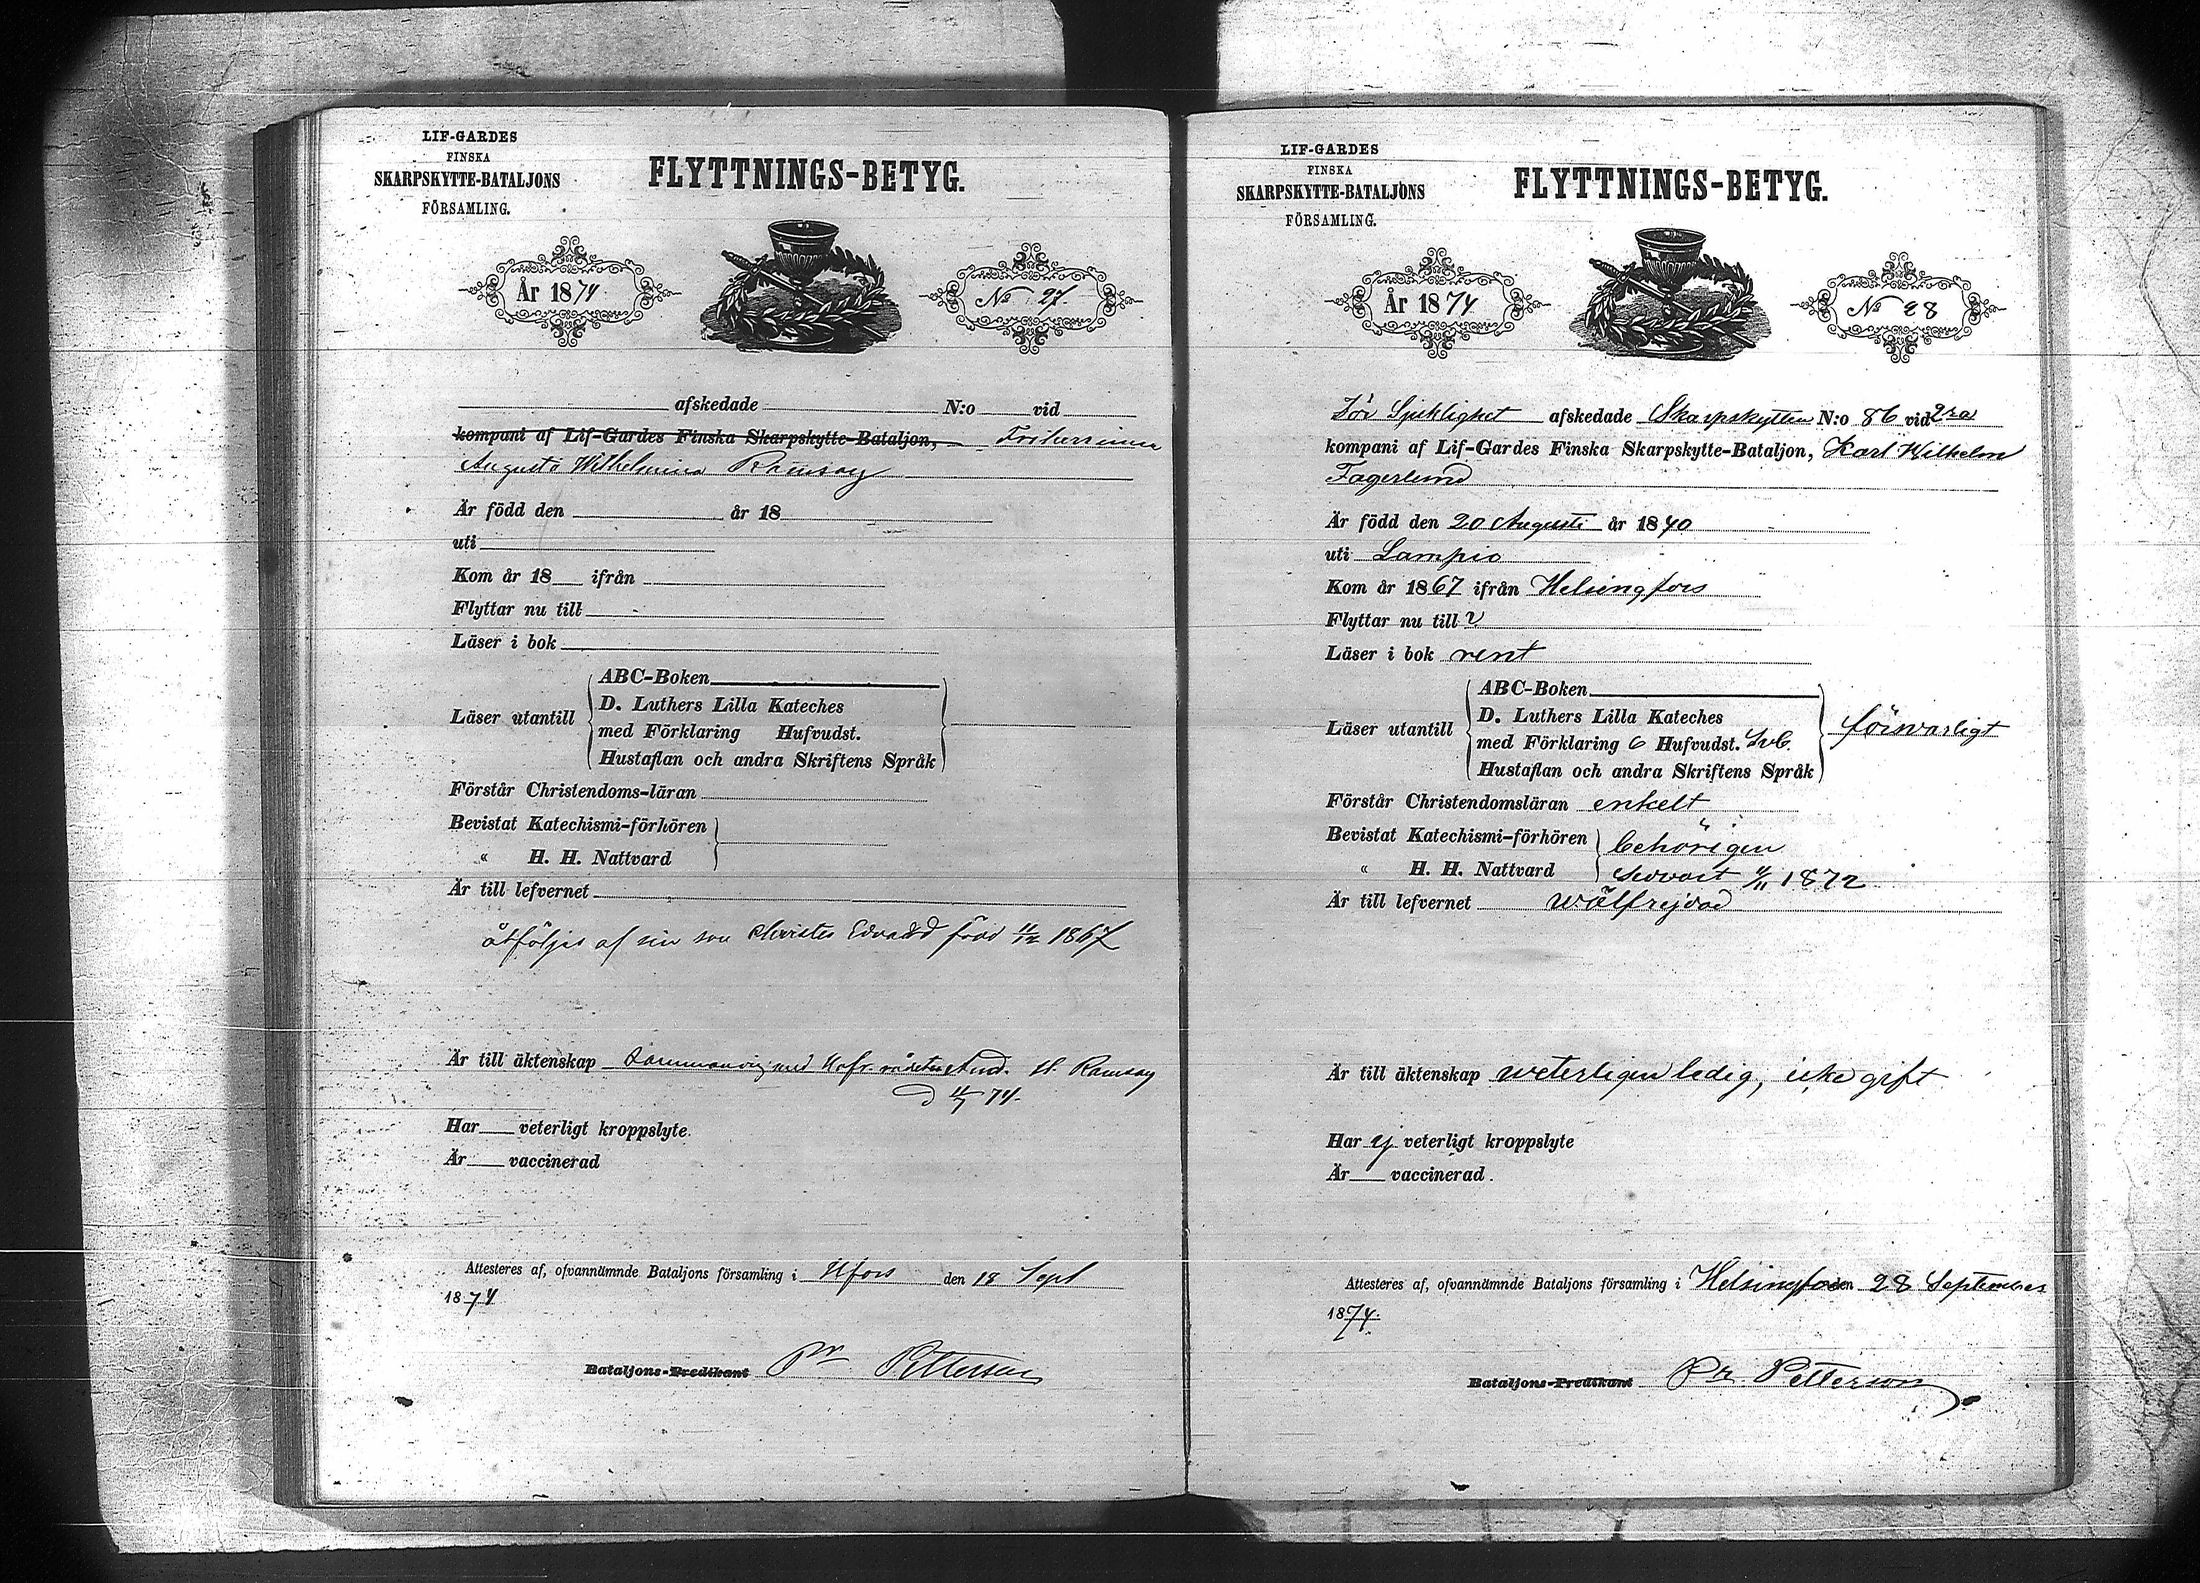 LIF-GARDES
FINSKA
SKARPSKYTTE-BATALJONS
FÖRSAMLING.
FLYTTNINGS-BETYG.
År 1874.
No 27.
afskedade N:o vid
kompani af Lif-Gardes Finska Skarpskytte-Bataljon, Friherrinna
Augusta Wilhelmina Ramsay
Är född den år 18
uti
Kom år 18 ifrån
Flyttar nu till
Läser i bok
ABC-Boken
Läser utantill
D. Luthers Lilla Kateches
med Förklaring Hufvudst.
Hustaflan och andra Skriftens Språk
Förstår Christendoms-läran
Bevistat Katechismi-förhören
« H. H. Nattvard
Är till lefvernet
åtföljes af sin son Edvard född 11/12 1867
Är till äktenskap med And. H. Ramsay
74.
Har veterligt kroppslyte.
Är vaccinerad
Attesteres af, ofvannämnde Bataljons församling i Hfors den 18 Sept
1874
Bataljons-Predikant Pr Petterson
LIF-GARDES
FINSKA
SKARPSKYTTE-BATALJONS
FÖRSAMLING.
FLYTTNINGS-BETYG.
År 1874
No 28
För Sjuklighet afskedade Skarpskytten N:o 86 vid 2ra
kompani af Lif-Gardes Finska Skarpskytte-Bataljon, Karl Wilhelm
Fagerlund
Är född den 20 Augusti år 1840
uti Lampis
Kom år 1867 ifrån Helsingfors
Flyttar nu till
Läser i bok rent
ABC-Boken
Läser utantill
D. Luthers Lilla Kateches
med Förklaring 6 Hufvudst.
Hustaflan och andra Skriftens Språk
försvarligt
Förstår Christendomsläran enkelt
Bevistat Katechismi-förhören behörigen
« H. H. Nattvard senast 1872
Är till lefvernet wälfrejdad
Är till äktenskap weterligen ledig, icke gift
Har ej veterligt kroppslyte
Är vaccinerad.
Attesteres af, ofvannämnde Bataljons församling i Helsingfors den 28 September
1874.
Bataljons-Predikant Pr. Petterson